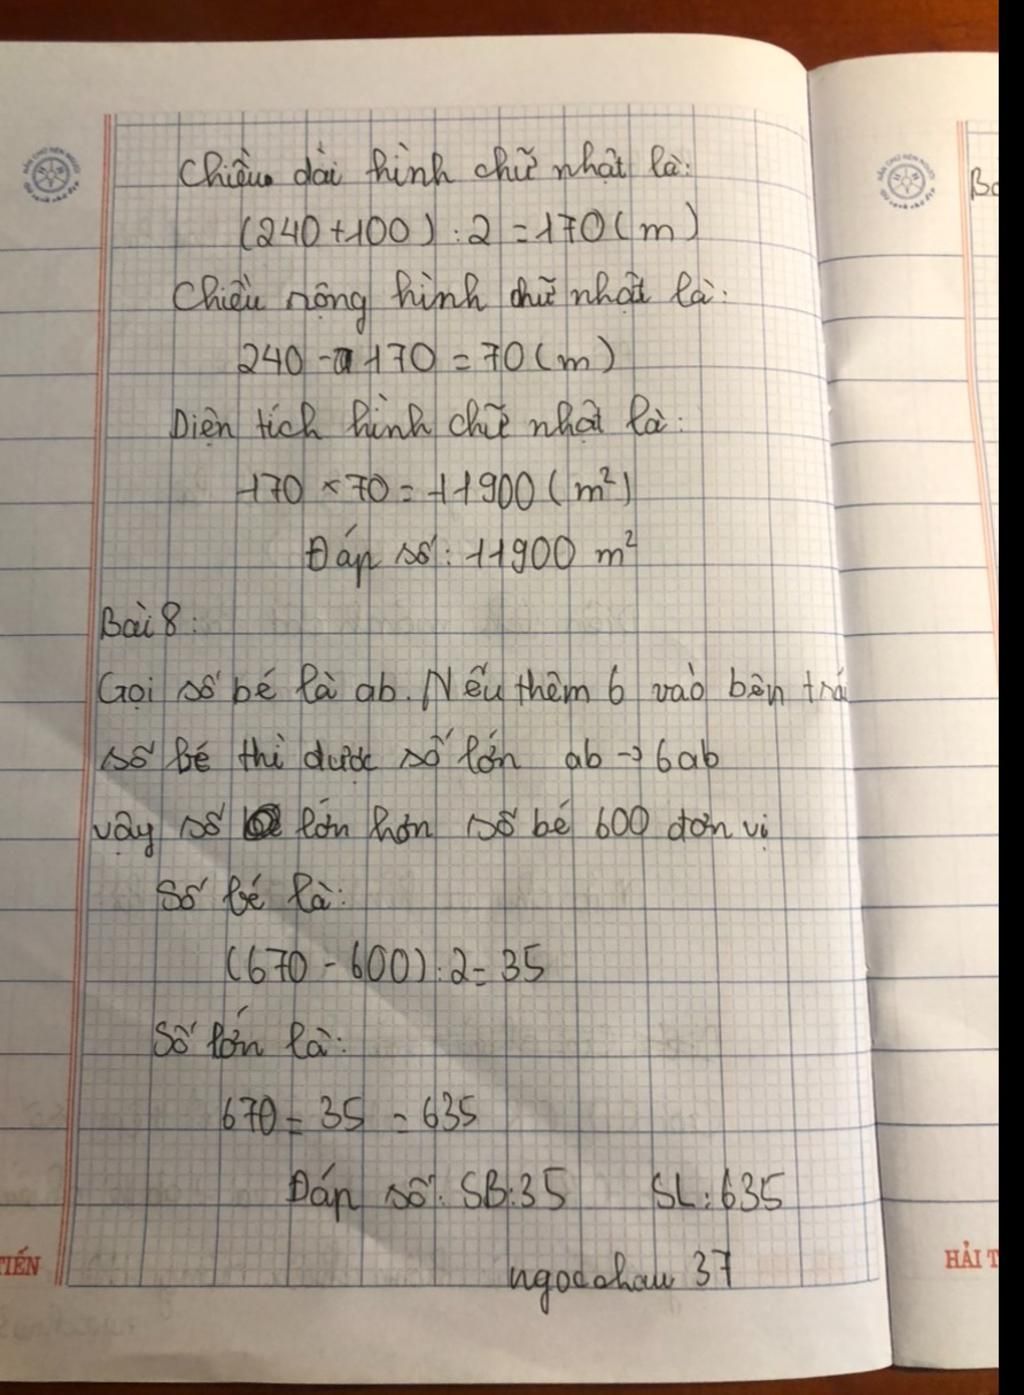 Chiều dài hình chữ nhật là:
(240+100) : 2 = 170 (m)
Chiều rộng hình chữ nhật là:
240 - 170 = 70 (m)
Diện tích hình chữ nhật là:
170 × 70 = 11900 (m²)
Đáp số: 11900 m²
Bài 8:
Gọi số bé là ab. Nếu thêm 6 vào bên trá
số bé thì được số lớn ab → 6ab
vậy số lớn hơn số bé 600 đơn vị
Số bé là:
(670 - 600) : 2 = 35
Số lớn là:
670 - 35 = 635
Đáp số: SB: 35 SL: 635
ngocchau 37
TIẾN
HẢI T